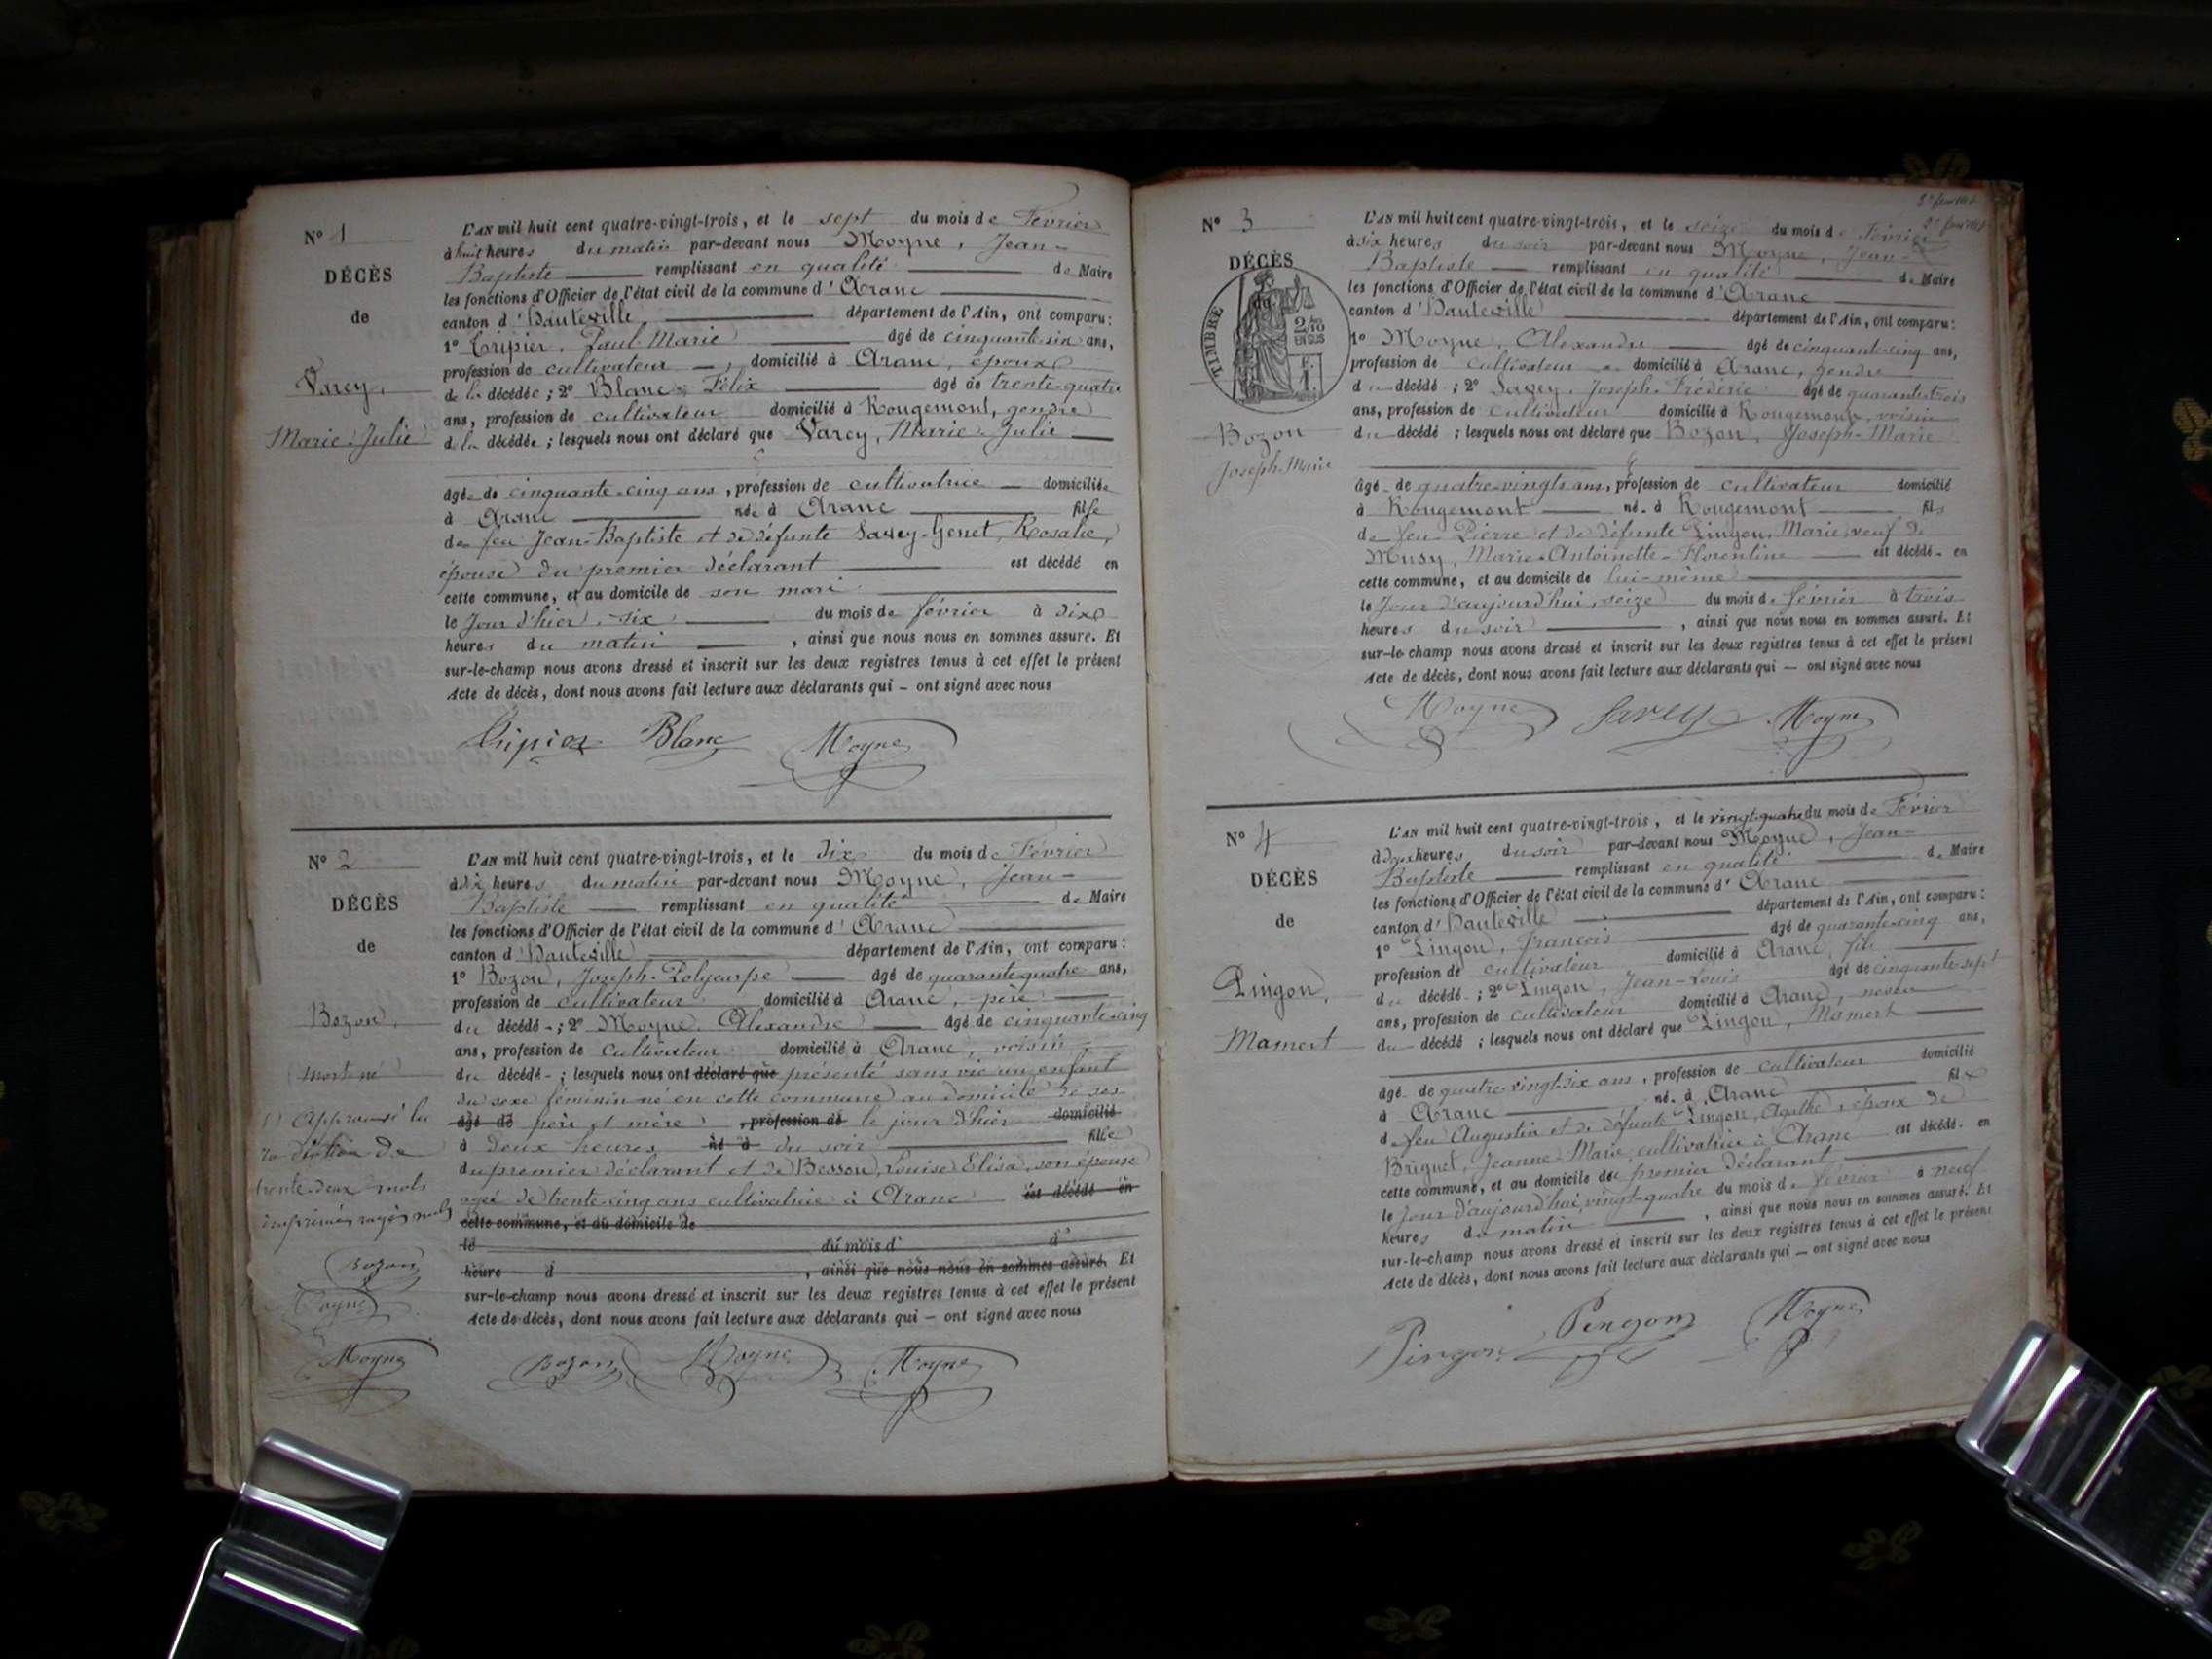 N° 1
DÉCÈS
de
Varcy,
Marie-Julie
L'AN mil huit cent quatre-vingt-trois, et le sept du mois de Février
à huit heures du matin par-devant nous Moyne, Jean-
Baptiste remplissant en qualité de Maire
les fonctions d'Officier de l'état civil de la commune d'Aranc
canton d'Hauteville département de l'Ain, ont comparu:
1° Tripier, Paul-Marie âgé de cinquante-six ans,
profession de cultivateur —, domicilié à Aranc, époux
de la décédée; 2° Blanc Félix âgé de trente-quatre
ans, profession de cultivateur domicilié à Rougemont, gendre
de la décédée; lesquels nous ont déclaré que Varcy, Marie-Julie
âgée de cinquante-cinq ans, profession de cultivatrice — domiciliée
à Aranc née à Aranc fille
de feu Jean-Baptiste et de défunte Savey-Genet, Rosalie,
épouse du premier déclarant est décédé en
cette commune, et au domicile de son mari
le jour d'hier, six du mois de février à dix
heures du matin, ainsi que nous nous en sommes assuré. Et
sur-le-champ nous avons dressé et inscrit sur les deux registres tenus à cet effet le présent
Acte de décès, dont nous avons fait lecture aux déclarants qui — ont signé avec nous
Tripier Blanc Moyne
N° 2
DÉCÈS
de
Bozon,
mort-né
L'AN mil huit cent quatre-vingt-trois, et le dix du mois de Février
à dix heures du matin par-devant nous Moyne, Jean-
Baptiste remplissant en qualité de Maire
les fonctions d'Officier de l'état civil de la commune d'Aranc
canton d'Hauteville département de l'Ain, ont comparu:
1° Bozon, Joseph-Polycarpe âgé de quarante-quatre ans,
profession de cultivateur domicilié à Aranc, père
du décédé; 2° Moyne, Alexandre âgé de cinquante-cinq
ans, profession de cultivateur domicilié à Aranc, voisin
du décédé; lesquels nous ont déclaré que présenté sans vie un enfant
du sexe féminin né en cette commune au domicile de ses
âgé de père et mère, profession de le jour d'hier domicilié
à deux heures né à du soir fille
du premier déclarant et de Besson, Louise Elisa, son épouse
agée de trente-cinq ans cultivatrice à Aranc est décédé en
cette commune, et au domicile de
le du mois d à
heure d, ainsi que nous nous en sommes assuré. Et
sur-le-champ nous avons dressé et inscrit sur les deux registres tenus à cet effet le présent
Acte de décès, dont nous avons fait lecture aux déclarants qui — ont signé avec nous
Approuvé la
radiation de
trente-deux mots
imprimés rayés nuls
Bozon
Moyne
Moyne
Bozon Moyne Moyne
N° 3
DÉCÈS
du
TIMBRE
2/10
EN SUS
F.
1.
Bozon
Joseph-Marie
L'AN mil huit cent quatre-vingt-trois, et le seize du mois de Février
à six heures du soir par-devant nous Moyne, Jean-
Baptiste remplissant en qualité de Maire
les fonctions d'Officier de l'état civil de la commune d'Aranc
canton d'Hauteville département de l'Ain, ont comparu:
1° Moyne, Alexandre âgé de cinquante-cinq ans,
profession de cultivateur domicilié à Aranc, gendre
du décédé; 2° Savey, Joseph-Frédéric âgé de quarante-trois
ans, profession de cultivateur domicilié à Rougemont, voisin
du décédé; lesquels nous ont déclaré que Bozon, Joseph-Marie
âgé de quatre-vingts ans, profession de cultivateur domicilié
à Rougemont né à Rougemont fils
de feu Pierre et de défunte Pingon, Marie, veuf de
Musy, Marie-Antoinette-Florentine est décédé en
cette commune, et au domicile de lui-même
le jour d'aujourd'hui, seize du mois de février à trois
heures du soir, ainsi que nous nous en sommes assuré. Et
sur-le-champ nous avons dressé et inscrit sur les deux registres tenus à cet effet le présent
Acte de décès, dont nous avons fait lecture aux déclarants qui — ont signé avec nous
Moyne Savey Moyne
N° 4
DÉCÈS
de
Pingon,
Mamert
L'AN mil huit cent quatre-vingt-trois, et le vingt-quatre du mois de Février
à deux heures du soir par-devant nous Moyne, Jean-
Baptiste remplissant en qualité de Maire
les fonctions d'Officier de l'état civil de la commune d'Aranc
canton d'Hauteville département de l'Ain, ont comparu:
1° Pingon, François âgé de quarante-cinq ans,
profession de cultivateur domicilié à Aranc, fils
du décédé; 2° Pingon, Jean-Louis âgé de cinquante-sept
ans, profession de cultivateur domicilié à Aranc, neveu
du décédé; lesquels nous ont déclaré que Pingon, Mamert
âgé de quatre-vingt-six ans, profession de cultivateur domicilié
à Aranc né à Aranc fils
de feu Augustin et de défunte Pingon, Agathe, époux de
Briguet, Jeanne-Marie, cultivatrice à Aranc est décédé en
cette commune, et au domicile du premier déclarant
le jour d'aujourd'hui, vingt-quatre du mois de février à neuf
heures du matin, ainsi que nous nous en sommes assuré. Et
sur-le-champ nous avons dressé et inscrit sur les deux registres tenus à cet effet le présent
Acte de décès, dont nous avons fait lecture aux déclarants qui — ont signé avec nous
Pingon Pingon Moyne